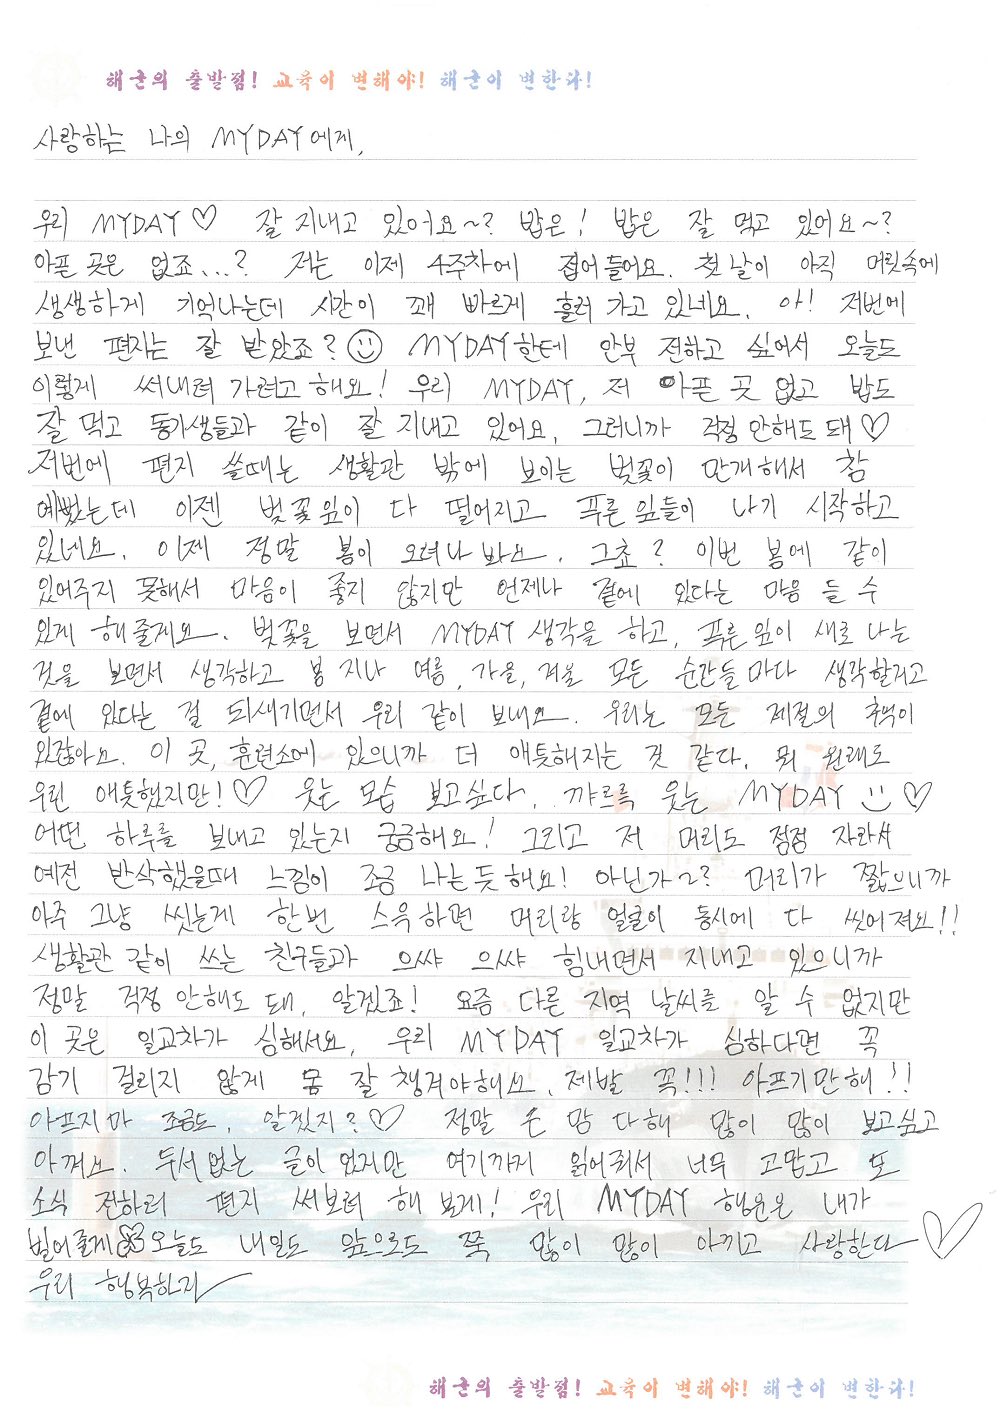 해군의 출발점! 교육이 변해야! 해군이 변한다!
사랑하는 나의 MYDAY에게,
우리 MYDAY♡ 잘 지내고 있어요~? 밥은! 밥은 잘 먹고 있어요~?
아픈 곳은 없죠...? 저는 이제 4주차에 접어들어요. 첫 날이 아직 머릿속에
생생하게 기억나는데 시간이 꽤 빠르게 흘러가고 있네요. 아! 저번에
보낸 편지는 잘 받았죠? ☺ MYDAY한테 안부 전하고 싶어서 오늘도
이렇게 써내려 가려고 해요! 우리 MYDAY, 저 아픈 곳 없고 밥도
잘 먹고 동기생들과 같이 잘 지내고 있어요. 그러니까 걱정 안해도 돼♡
저번에 편지 쓸때는 생활관 밖에 보이는 벚꽃이 만개해서 참
예뻤는데 이젠 벚꽃잎이 다 떨어지고 푸른 잎들이 나기 시작하고
있네요. 이제 정말 봄이 오려나 봐요. 그쵸? 이번 봄에 같이
있어주지 못해서 마음이 좋지 않지만 언제나 곁에 있다는 마음 들 수
있게 해줄게요. 벚꽃을 보면서 MYDAY 생각을 하고, 푸른 잎이 새로 나는
것을 보면서 생각하고 봄 지나 여름, 가을, 겨울 모든 순간들마다 생각할리고
곁에 있다는 걸 되새기면서 우리 같이 보내요. 우리는 모든 계절의 추억이
있잖아요. 이 곳, 훈련소에 있으니까 더 애틋해지는 것 같다. 뭐 원래도
우린 애틋했지만!♡ 웃는 모습 보고싶다. 꺄르륵 웃는 MYDAY ☺♡
어떤 하루를 보내고 있는지 궁금해요! 그리고 저 머리도 점점 자라서
예전 반삭했을때 느낌이 조금 나는듯해요! 아닌가~? 머리가 짧으니까
아주 그냥 씻는게 한번 스윽하면 머리랑 얼굴이 동시에 다 씻어져요!!
생활관 같이 쓰는 친구들과 으쌰 으쌰 힘내면서 지내고 있으니까
정말 걱정 안해도 돼, 알겠죠! 요즘 다른 지역 날씨를 알 수 없지만
이 곳은 일교차가 심해서요, 우리 MYDAY 일교차가 심하다면 꼭
감기 걸리지 않게 몸 잘 챙겨야해요. 제발 꼭!!! 아프기만해!!
아프지마 조금도, 알겠지?♡ 정말 온 맘 다해 많이 많이 보고싶고
아껴요. 두서없는 글이 었지만 여기까지 읽어줘서 너무 고맙고 또
소식 전하러 편지 써보려 해 볼게! 우리 MYDAY 행운은 내가
빌어줄게 오늘도 내일도 앞으로도 쭉 많이 많이 아끼고 사랑한다 ♡
우리 행복하자
해군의 출발점! 교육이 변해야! 해군이 변한다!